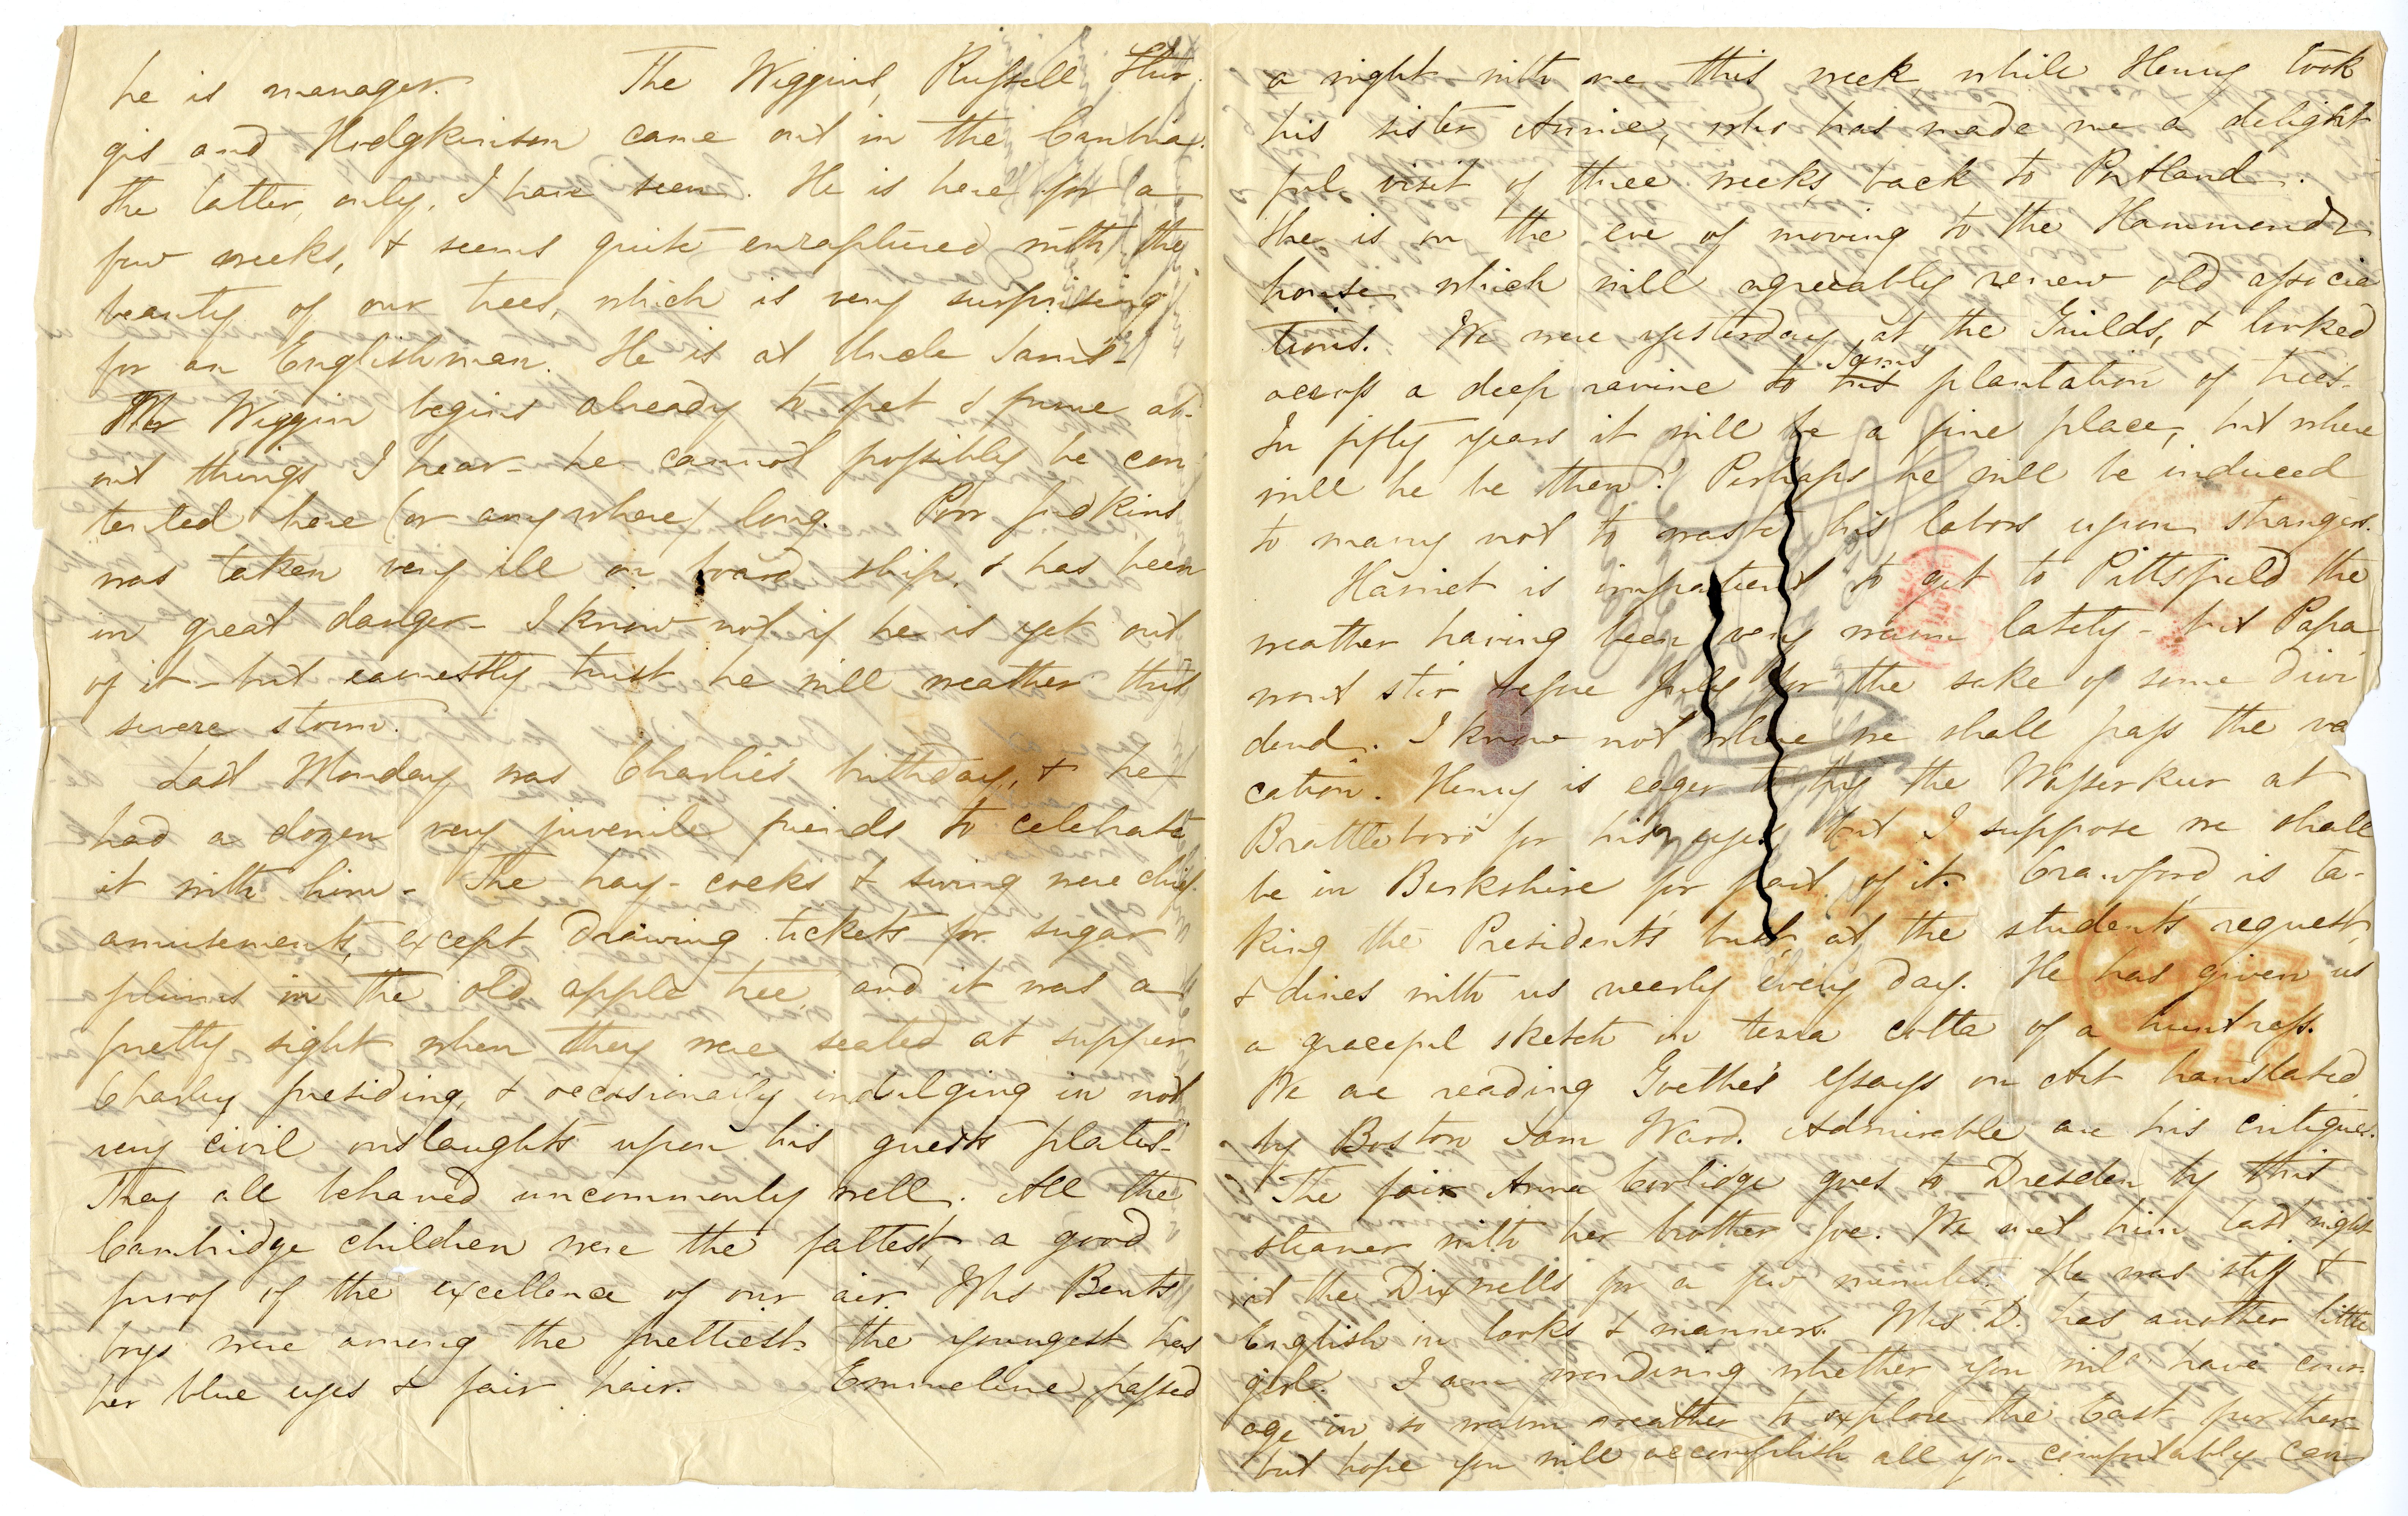 he is manager. The Wiggins, Russell Stur
gis and Hodgkinson came out in the Cambria.
the latter, only, I have seen. He is here for a
few weeks, & seems quite enraptured with the
beauty of our trees, which is very surprising
for an Englishman. He is at Uncle Sam's –
Mr Wiggin begins already to fret & fume ab-
out things I hear – he cannot possibly be con
tented here (or anywhere) long. Poor Judkins
was taken very ill on board ship, & has been
in great danger – I know not if he is yet out
of it – but earnestly trust he will weather this
severe storm.
Last Monday was Charlie's birthday, & he
had a dozen very juvenile friends to celebrate
it with him – The hay-cocks & swing were chief
amusements, except drawing tickets for sugar
plums in the old apple tree, and it was a
pretty sight when they were seated at supper
Charley presiding, & occasionally indulging in not
very civil onslaughts upon his guests' plates –
They all behaved uncommonly well. All the
Cambridge children were the fattest, a good
proof of the excellence of our air. Mrs Bents
boys were among the prettiest – the youngest has
her blue eyes & fair hair. Emmeline passed
a night with me this week while Henry took
his sister Annie, who has made me a delight
ful visit of three weeks, back to Portland.
She is on the eve of moving to the Hammond's
house which will agreeably renew old associa
tions. We were yesterday at the Guilds, & looked
across a deep ravine to his Sam's plantation of trees –
In fifty years it will be a fine place, but where
will he be then? Perhaps he will be induced
to marry not to waste his labors upon strangers.
Harriet is impatient to get to Pittsfield the
weather having been very warm lately – but Papa
wont stir before July for the sake of some divi
dend. I know not where we shall pass the va
cation. Henry is eager to try the Wasserkur at
Brattleboro' for his eyes but I suppose we shall
be in Berkshire for part of it. Crawford is ta-
king the Presidents' bust at the students' request,
& dines with us nearly every day. He has given us
a graceful sketch in terra cotta of a huntress.
We are reading Goethe's Essays on Art translated
by Boston Sam Ward. Admirable are his critiques.
The fair Anna Coolidge goes to Dresden by this
steamer with her brother Joe. We met him last night
at the Dixwells for a few minutes. He was stiff &
English in looks & manners. Mrs D. has another little
girl. I am wondering whether you will have cour-
age in so warm weather to explore the East further –
but hope you will accomplish all you comfortably can